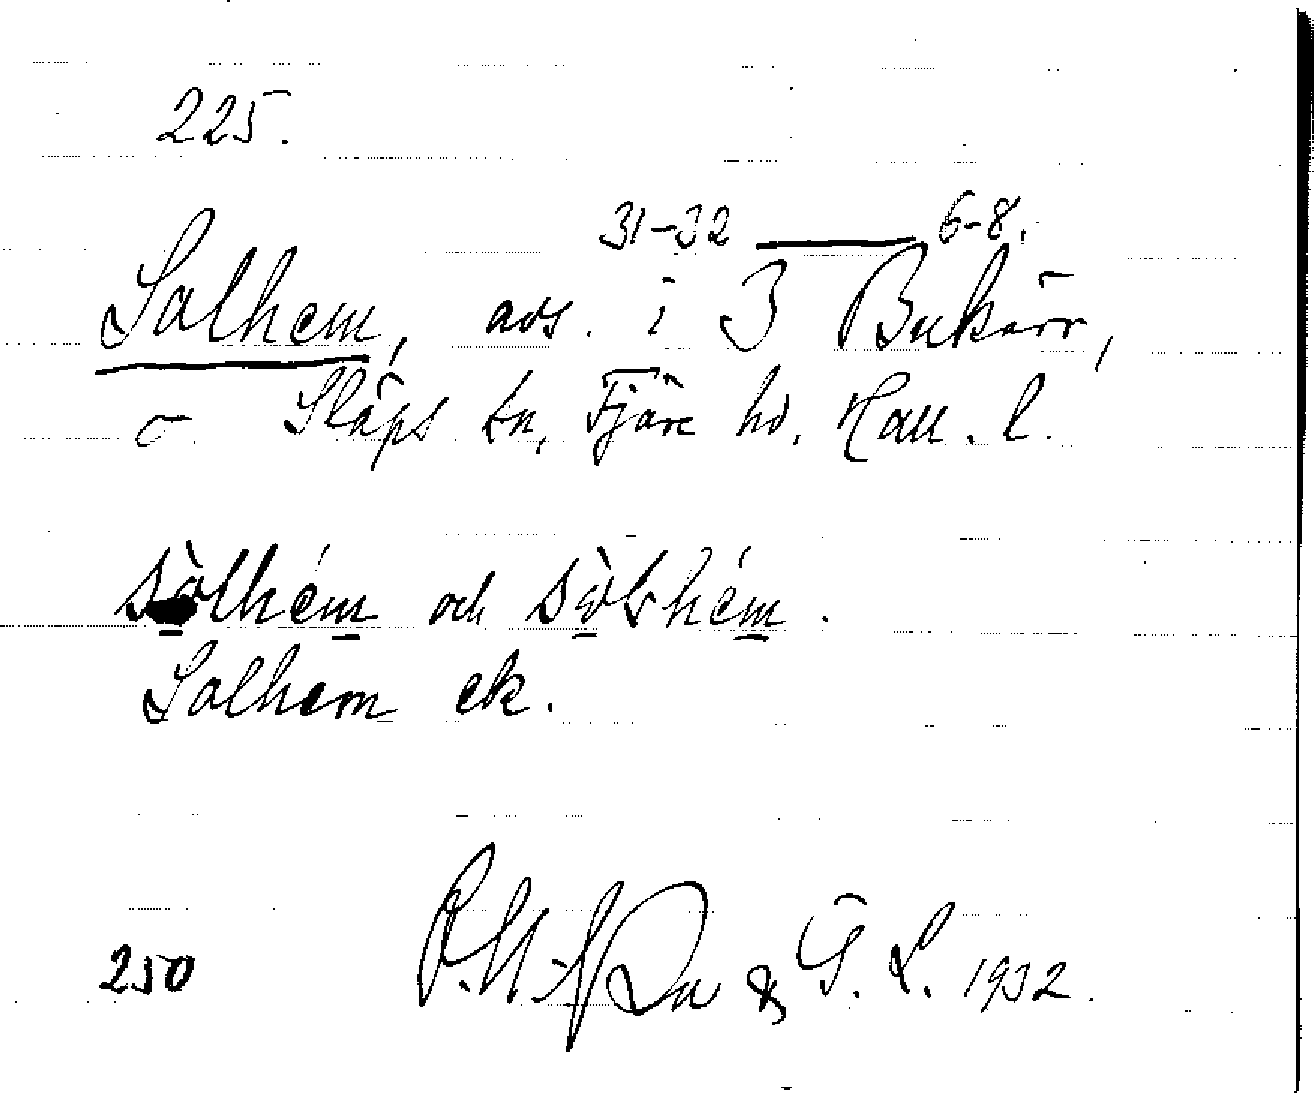 225.
31-32 — 6-8.
Solhem, avs. i 3 Bukärr,
Släps sn, Fjäre hd. Hall. l.
sòlhém och sòlshém.
Solhem ek.
250 & G. L. 1932.